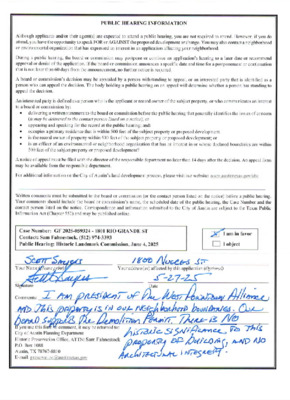 PUBLIC HEARING INFORMATION
Although applicants and/or their agent(s) are expected to attend a public hearing, you are not required to attend. However, if you do
attend, you have the opportunity to speak FOR or AGAINST the proposed development or change. You may also contact a neighborhood
or environmental organization that has expressed an interest in an application affecting your neighborhood.
During a public hearing, the board or commission may postpone or continue an application's hearing to a later date or recommend
approval or denial of the application. If the board or commission announces a specific date and time for a postponement or continuation
that is not later than 60 days from the announcement, no further notice is required.
A board or commission's decision may be appealed by a person with standing to appeal, or an interested party that is identified as a
person who can appeal the decision. The body holding a public hearing on an appeal will determine whether a person has standing to
appeal the decision.
An interested party is defined as a person who is the applicant or record owner of the subject property, or who communicates an interest
to a board or commission by:
• delivering a written statement to the board or commission before the public hearing that generally identifies the issues of concern
• appearing and speaking for the record at the public hearing; and:
• occupies a primary residence that is within 500 feet of the subject property or proposed development;
• is the record owner of property within 500 feet of the subject property or proposed development; or
• is an officer of an environmental or neighborhood organization that has an interest in or whose declared boundaries are within
500 feet of the subject property or proposed development.
A notice of appeal must be filed with the director of the responsible department no later than 14 days after the decision. An appeal form
may be available from the responsible department.
For additional information on the City of Austin's land development process, please visit our website:
Written comments must be submitted to the board or commission (or the contact person listed on the notice) before a public hearing.
Your comments should include the board or commission's name, the scheduled date of the public hearing, the Case Number and the
contact person listed on the notice. Correspondence and information submitted to the City of Austin are subject to the Texas Public
Information Act (Chapter 552) and may be published online.
Contact: Sam Fahnestock, (512) 974-3393
Public Hearing: Historic Landmark Commission, June 4, 2025
I am in favor
I object
1800 NUECES ST
5-27-25
Signature Date
Comments: I AM PRESIDENT OF THE WEST DOWNTOWN ALLIANCE
AND THIS PROPERTY IS IN OUR NEIGHBORHOOD BOUNDARIES. OUR
BOARD SUPPORTS THE DEMOLITION PERMIT. THERE IS NO
HISTORIC SIGNIFICANCE TO THIS
PROPERTY OR BUILDING, AND NO
ARCHITECTURAL INTEGRITY.
If you use this form to comment, it may be returned to:
City of Austin Planning Department
Historic Preservation Office, ATTN: Sam Fahnestock
P.O. Box 1088
Austin, TX 78767-8810